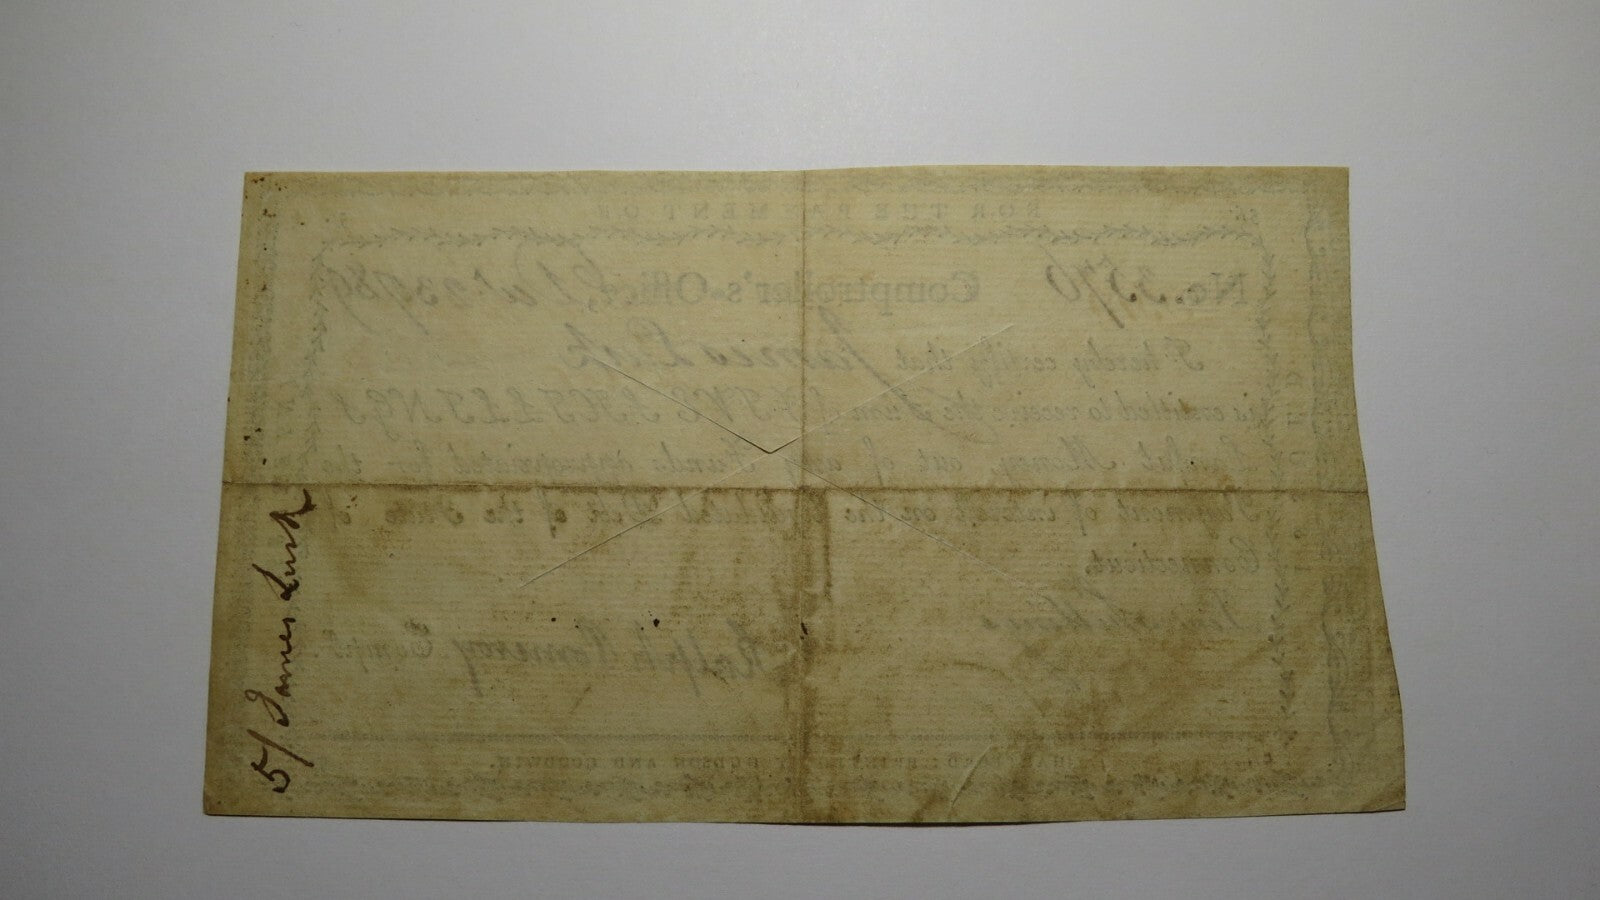 FOR THE PAYMENT OF
No. 3570 Comptroller's-Office,
I hereby certify that James Lusk
is entitled to receive the Sum of FIVE SHILLINGS
Lawful Money, out of any Funds appropriated for the
Payment of interest on the Debt of the State of
Connecticut.
Ralph Pomeroy Compt.
HARTFORD: PRINTED BY HUDSON AND GOODWIN.
5/ James Lusk